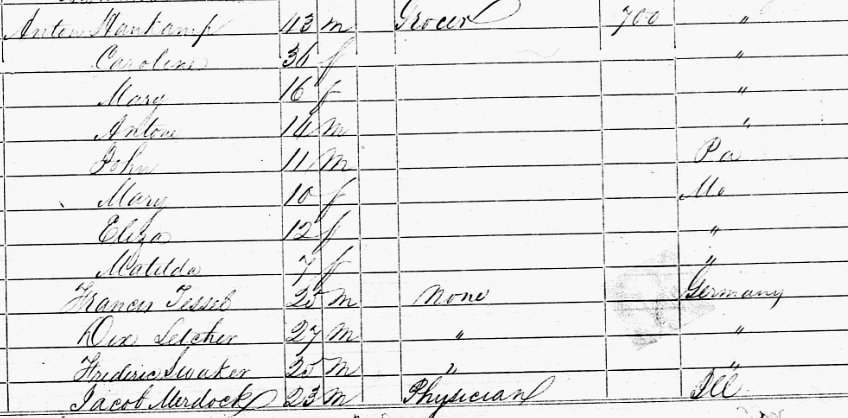 Anton Hautkamp 43 m Grocer 700 "
Caroline 36 f "
Mary 16 f "
Antone 14 m "
John 11 m Pa
Mary 10 f Mo
Eliza 12 f "
Matilda 7 f "
Francis Tessel 25 m None Germany
Dex Letcher 27 m " "
Frederic Swaker 25 m " "
Jacob Murdock 23 m Physician Ill